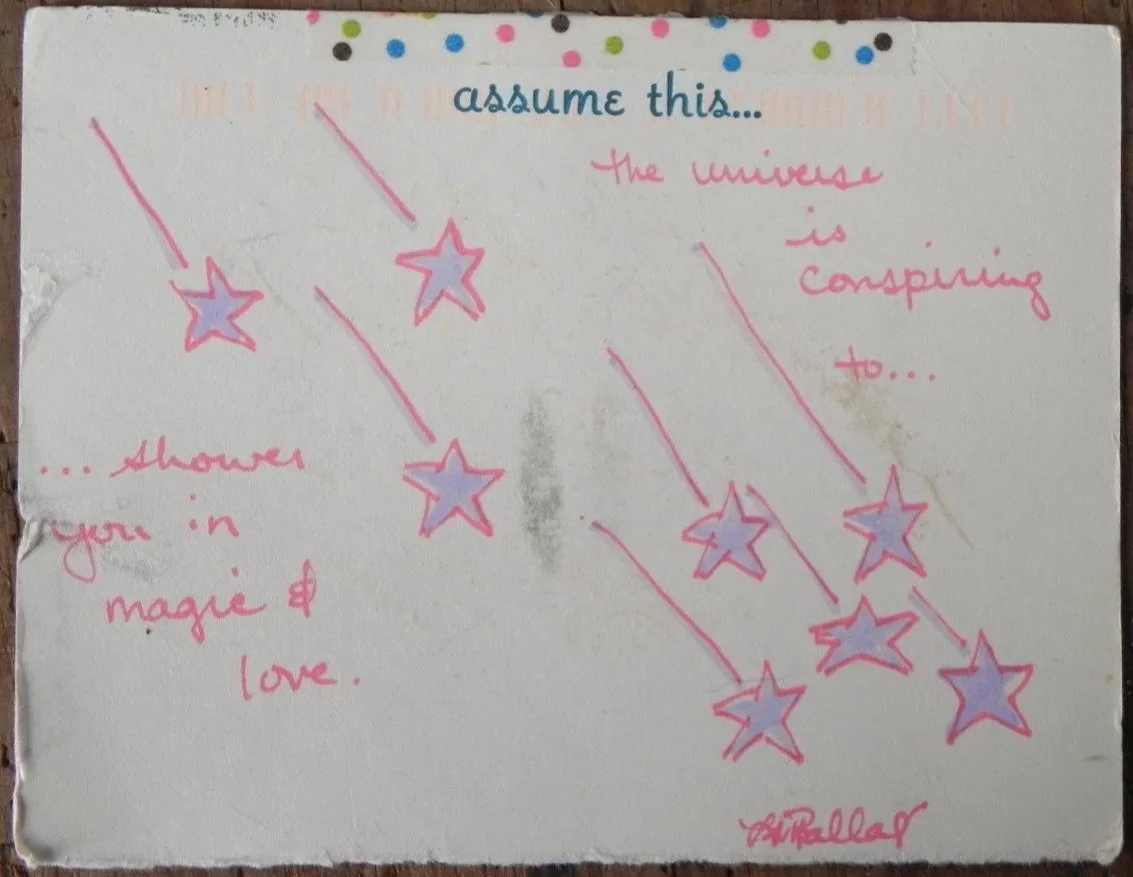 assume this...
the universe
is
conspiring
to...
... shower
you in
magic &
love.